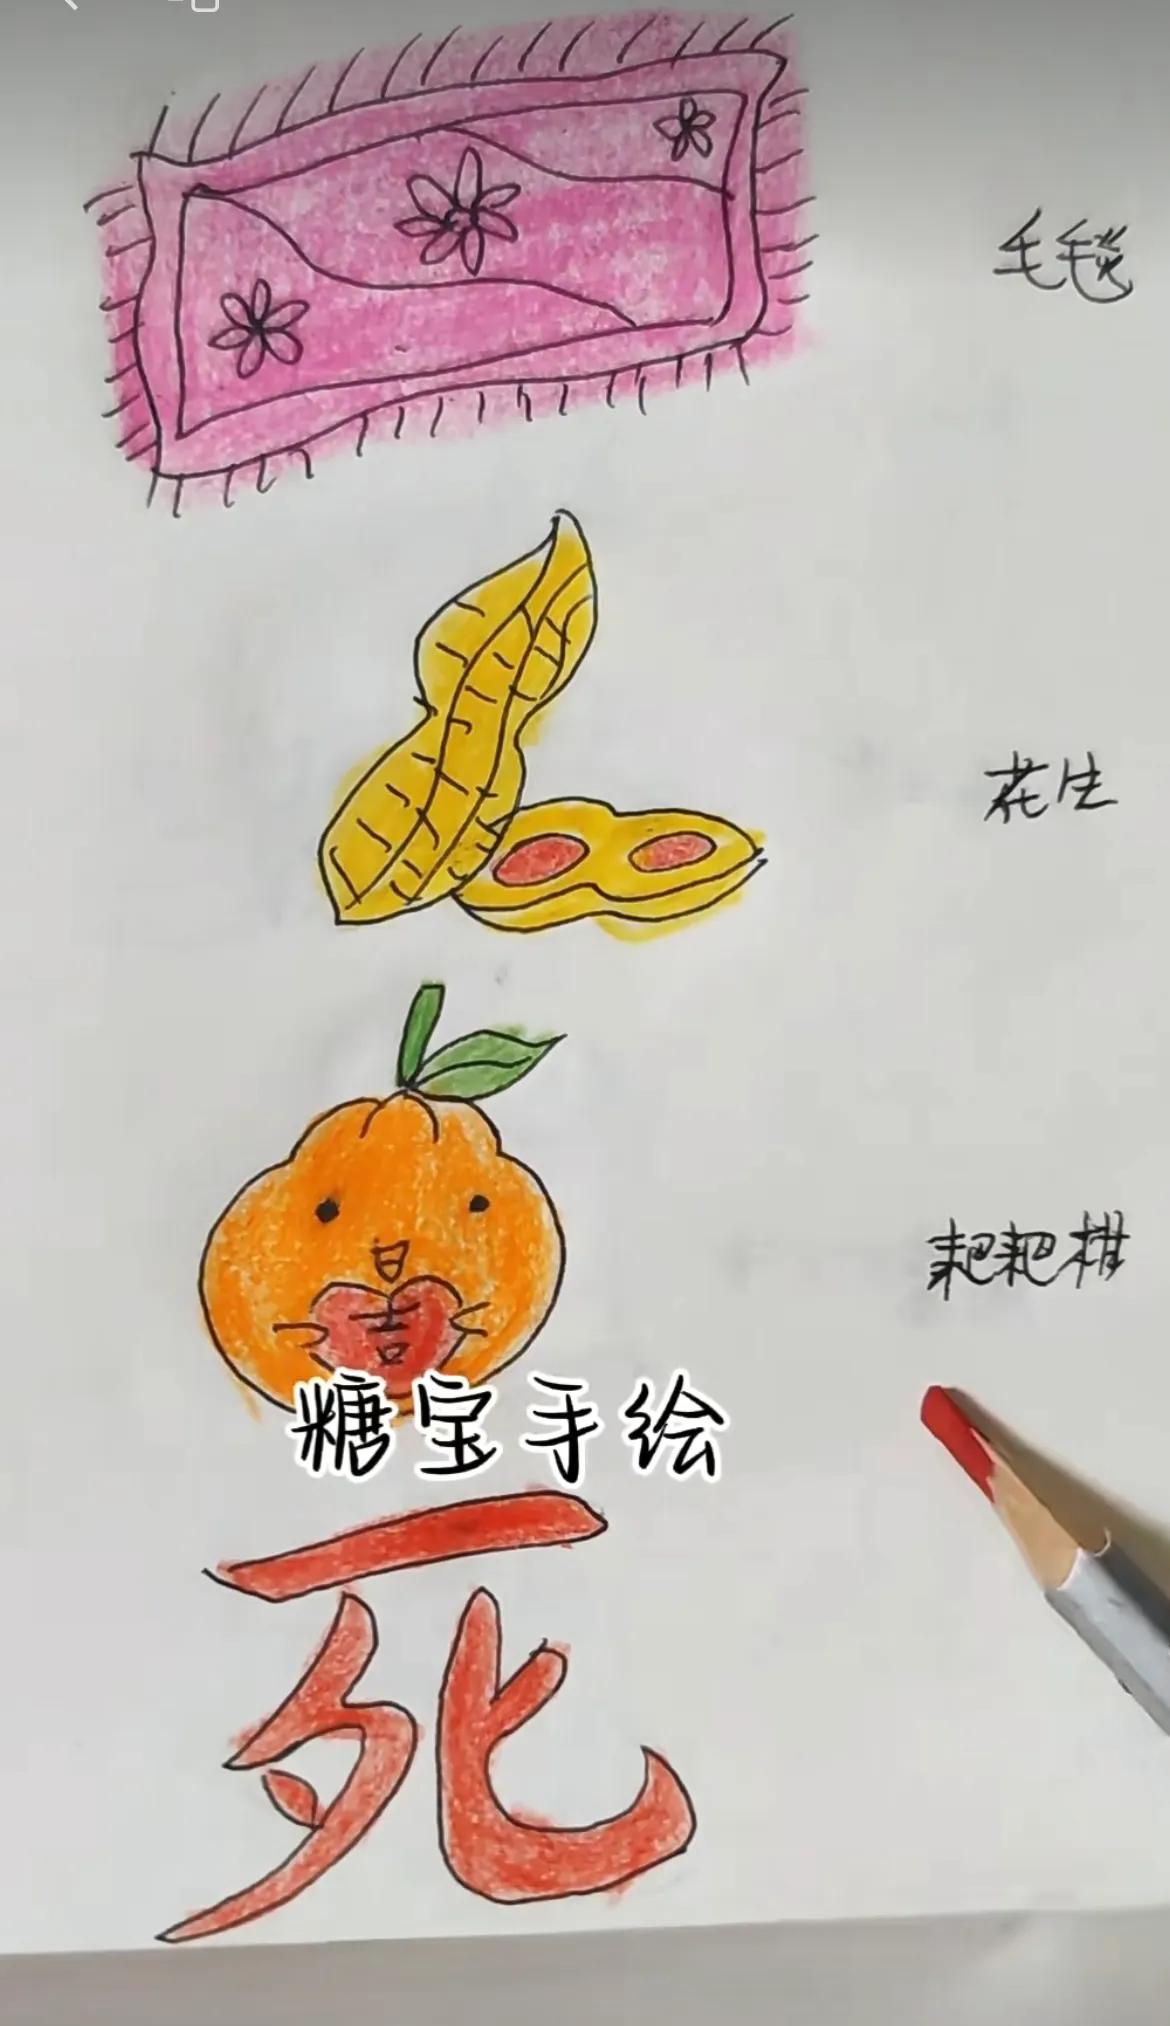 毛毯
花生
耙耙柑
吉
糖宝手绘
死